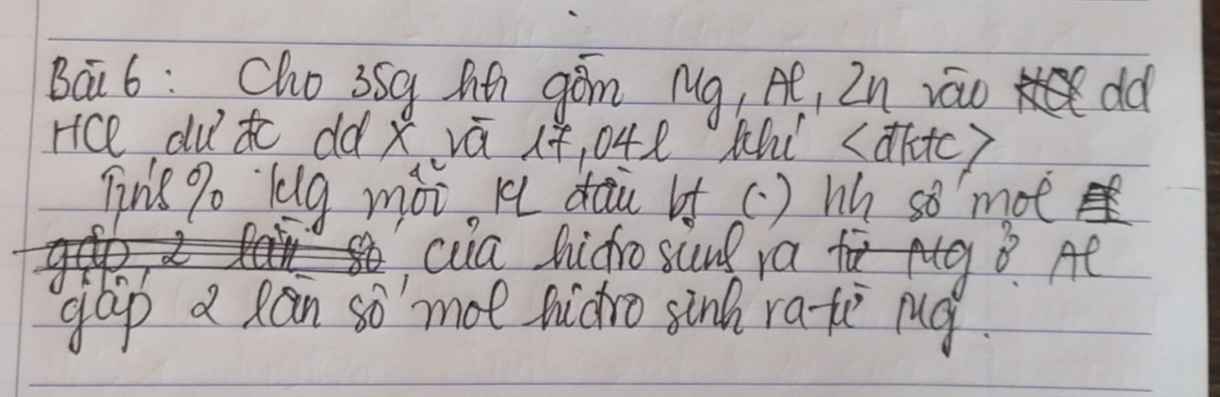 Bài 6: Cho 35g hh gồm Mg, Al, Zn vào dd
HCl dư đc dd X và 17,04l khí <đktc>
Tính % klg mỗi KL đầu bt (.) hh số mol
của hidro sinh ra ở Al
gấp 2 lần số mol hidro sinh ra từ Mg.